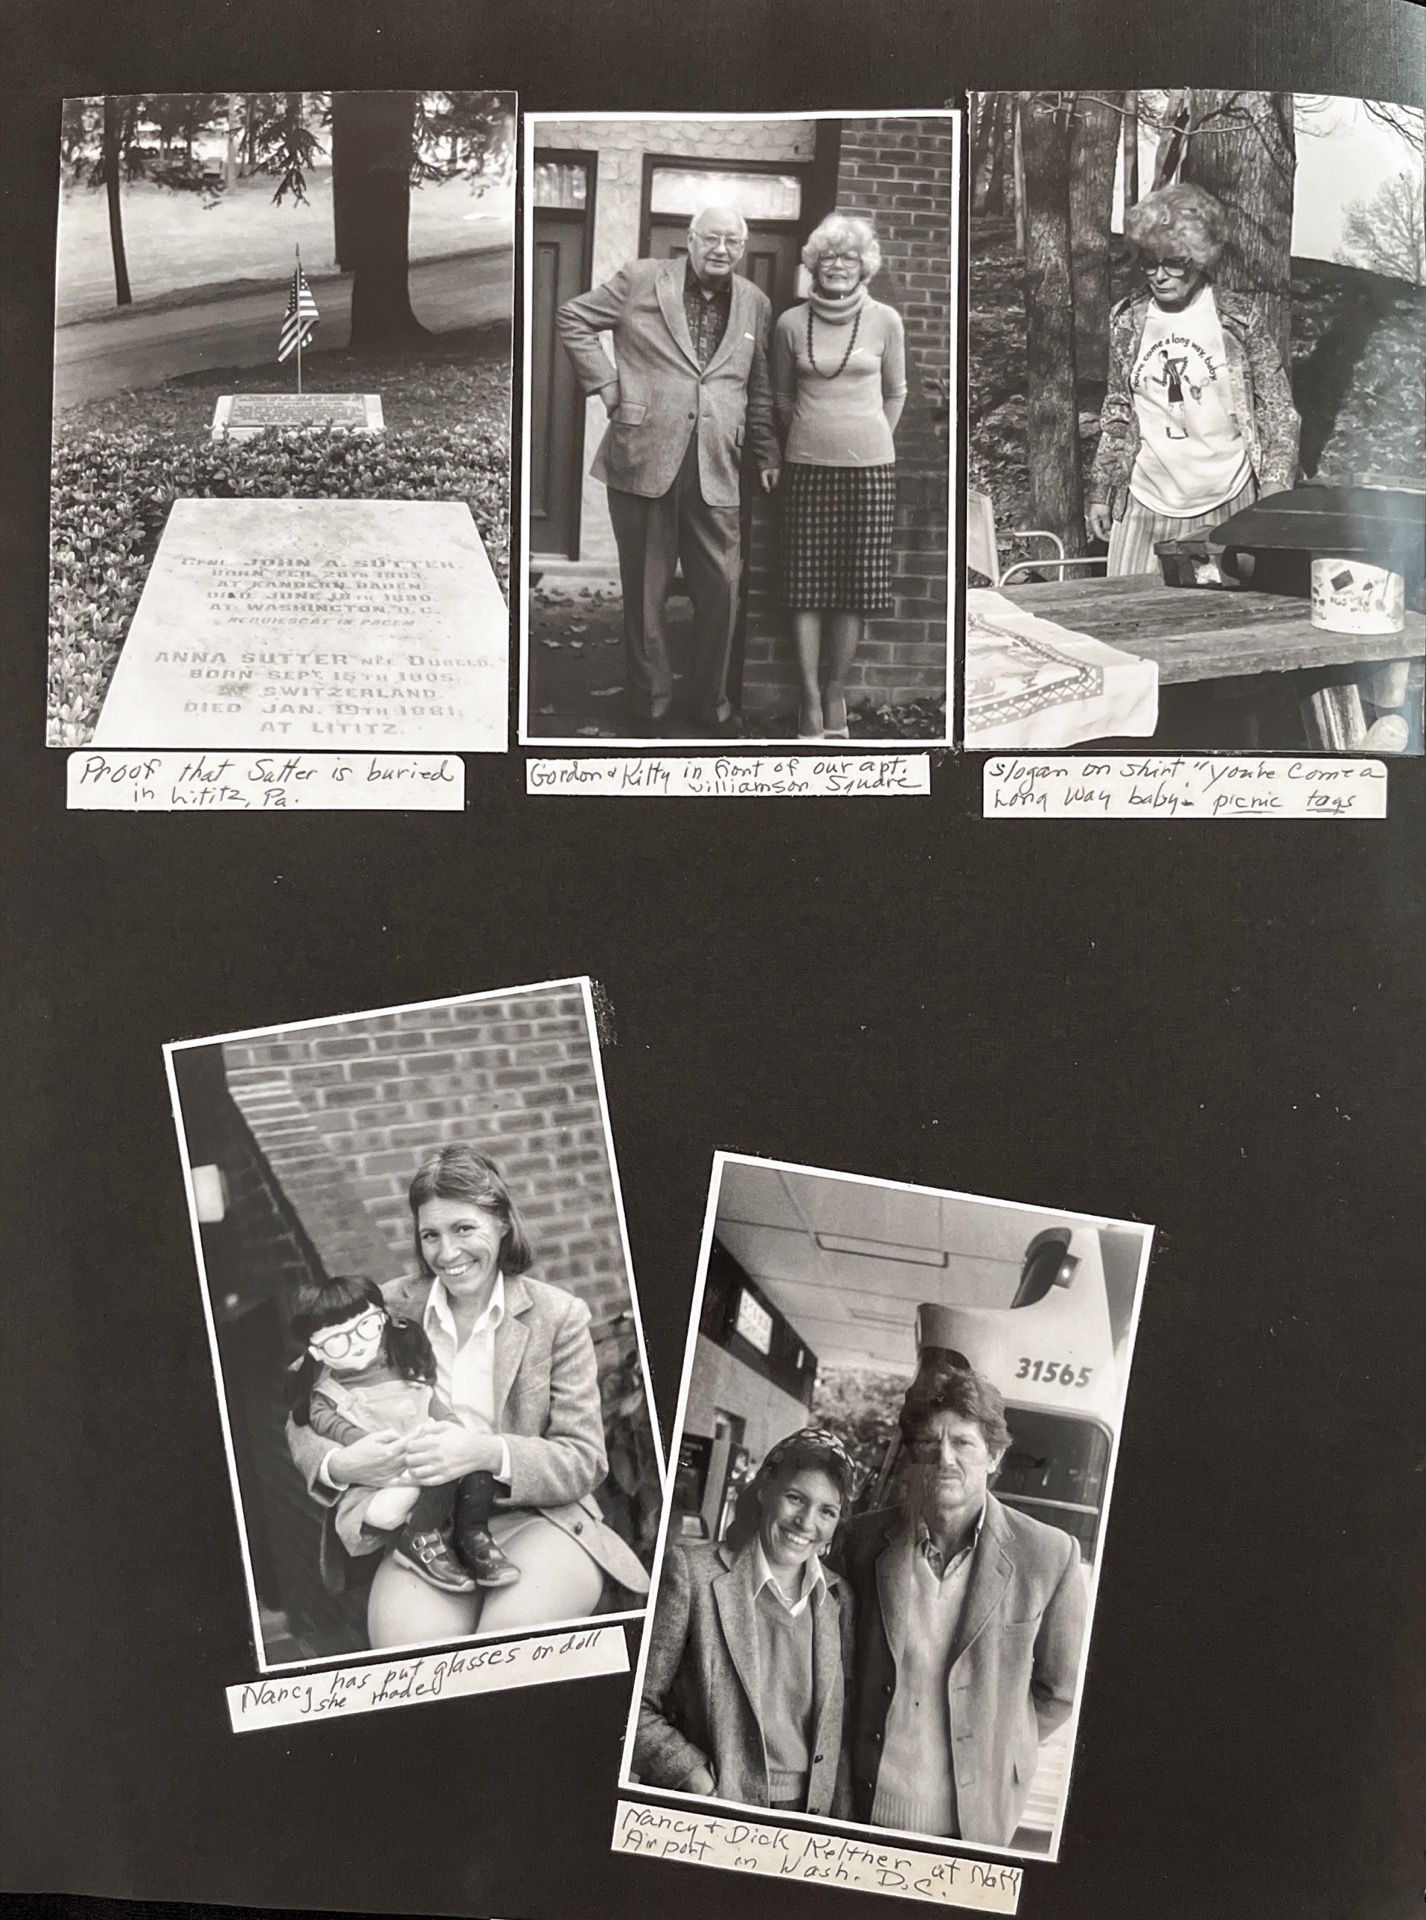 GENL. JOHN A. SUTTER.
BORN FEB. 28TH 1803.
AT KANDERN, BADEN
DIED JUNE 18TH 1880.
AT WASHINGTON, D.C.
REQUIESCAT IN PACEM
ANNA SUTTER NÉE DÜBELD.
BORN SEPT. 15TH 1805.
AT SWITZERLAND
DIED JAN. 19TH 1881,
AT LITITZ.
Proof that Sutter is buried
in Lititz, Pa.
Gordon & Kitty in front of our apt.
Williamson Square
you've come a long way, baby
slogan on shirt "you've Come a
Long Way baby". picnic togs
Nancy has put glasses on doll
she made
31565
Nancy + Dick Keltner at Nat'l
Airport in Wash. D.C.